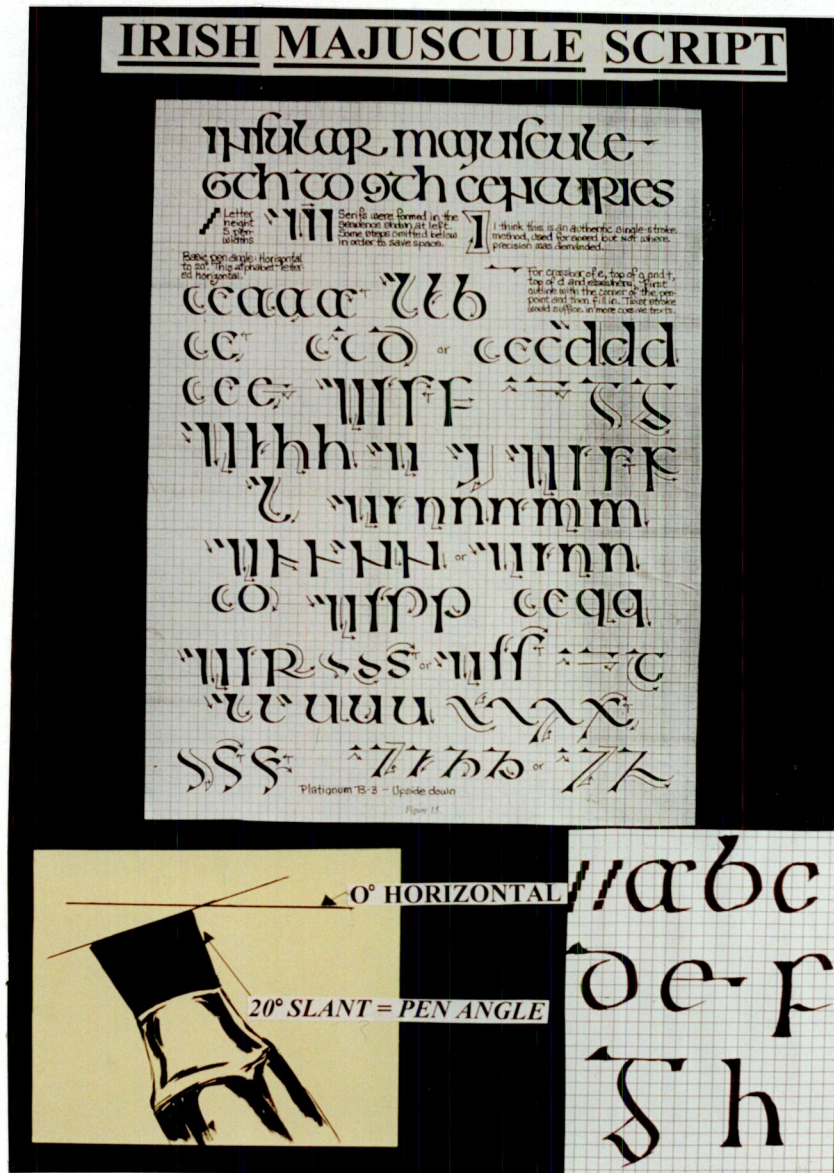 IRISH MAJUSCULE SCRIPT
insular majuscule
6th to 9th centuries
Letter
height
5 pen
widths
Serifs were formed in the
sequence shown at left.
Some steps omitted below
in order to save space.
I think this is an authentic single-stroke
method, used for speed but NOT where
precision was demanded.
Basic pen angle: Horizontal
to 20°. This alphabet letter-
ed horizontal.
For crossbar of e, top of g and t,
top of d and elsewhere, first
outline with the corner of the pen-
point and then fill in. Twist stroke
would suffice in more cursive texts.
a b
c d or d
e f g
h i j k
l m
n or n
o p q
r s or s t
u x
y z or z
Platignum B-3 – Upside down
Figure 13.
0° HORIZONTAL
20° SLANT = PEN ANGLE
a b c
d e f
g h